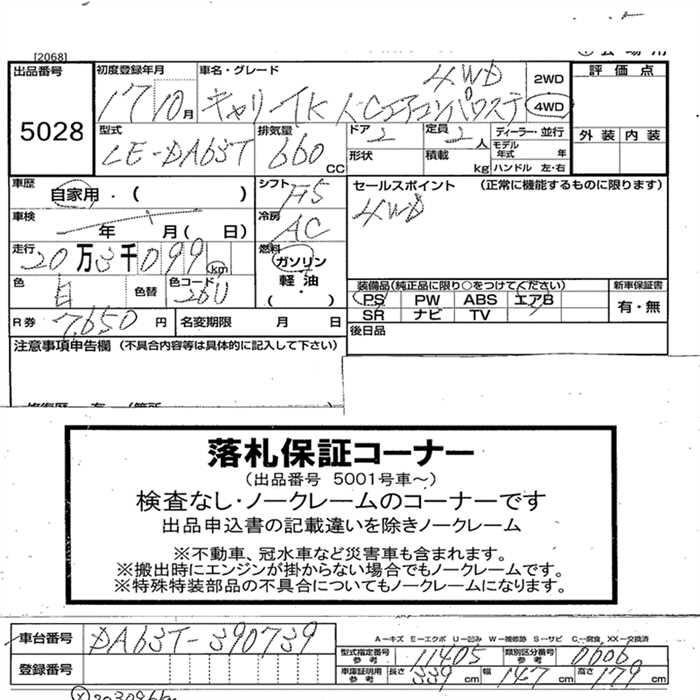 [2068]
出品番号 初度登録年月 車名・グレード 評価点
5028
17 10月 キャリイTK 4WD 2WD
エアコン パワステ 4WD
型式 排気量 ドア 定員 ディーラー・並行 外装 内装
LE-DA63T 660CC 2 2人 モデル年式 年
形状 積載 kg ハンドル 左・右
車歴 自家用・( ) シフト F5 セールスポイント (正常に機能するものに限ります)
車検 年 月( 日) 冷房 AC 4WD
走行 20万3千099km 燃料 ガソリン
軽油
(・)
色 白 色替 色コード 26U
装備品(純正品に限り○をつけてください) 新車保証書
PS PW ABS エアB 有・無
SR ナビ TV
R券 7,650円 名変期限 月 日 後日品
注意事項申告欄 (不具合内容等は具体的に記入して下さい)
落札保証コーナー
(出品番号 5001号車～)
検査なし・ノークレームのコーナーです
出品申込書の記載違いを除きノークレーム
※不動車、冠水車など災害車も含まれます。
※搬出時にエンジンが掛からない場合でもノークレームです。
※特殊特装部品の不具合についてもノークレームになります。
車台番号 DA63T-390739 A－キズ E－エクボ U－凹み W－補修跡 S－サビ C－腐食 XX－交換済
型式指定番号 参考 11405 類別区分番号 参考 0606
登録番号 車庫証明用 参考 長さ 339cm 幅 147cm 高さ 179cm